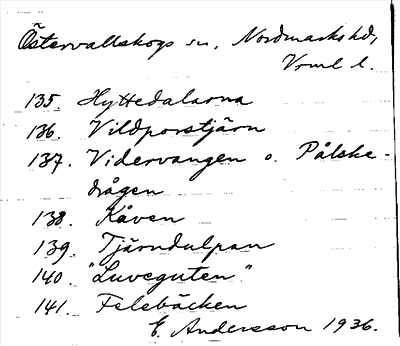 Östervallskogs sn, Nordmarks hd,
Vrml l.
135. Hyttedalarna
136. Vildporstjärn
137. Vidervangen o. Pålske-
drågen
138. Kåven
139. Tjärndulpan
140. "Luveguten."
141. Felebäcken
E. Andersson 1936.